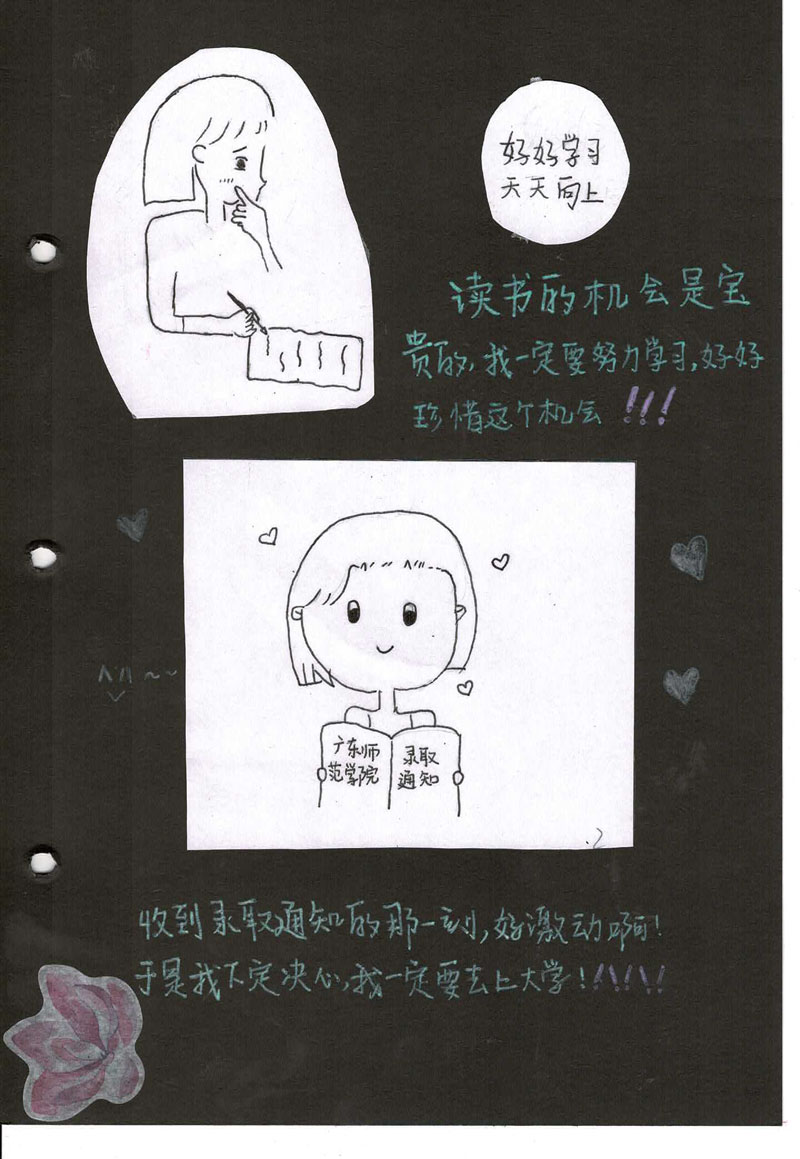 好好学习
天天向上
读书的机会是宝
贵的,我一定要努力学习,好好
珍惜这个机会!!!
广东师
范学院
录取
通知
.2
收到录取通知的那一刻,好激动啊!
于是我下定决心,我一定要去上大学!!!!!